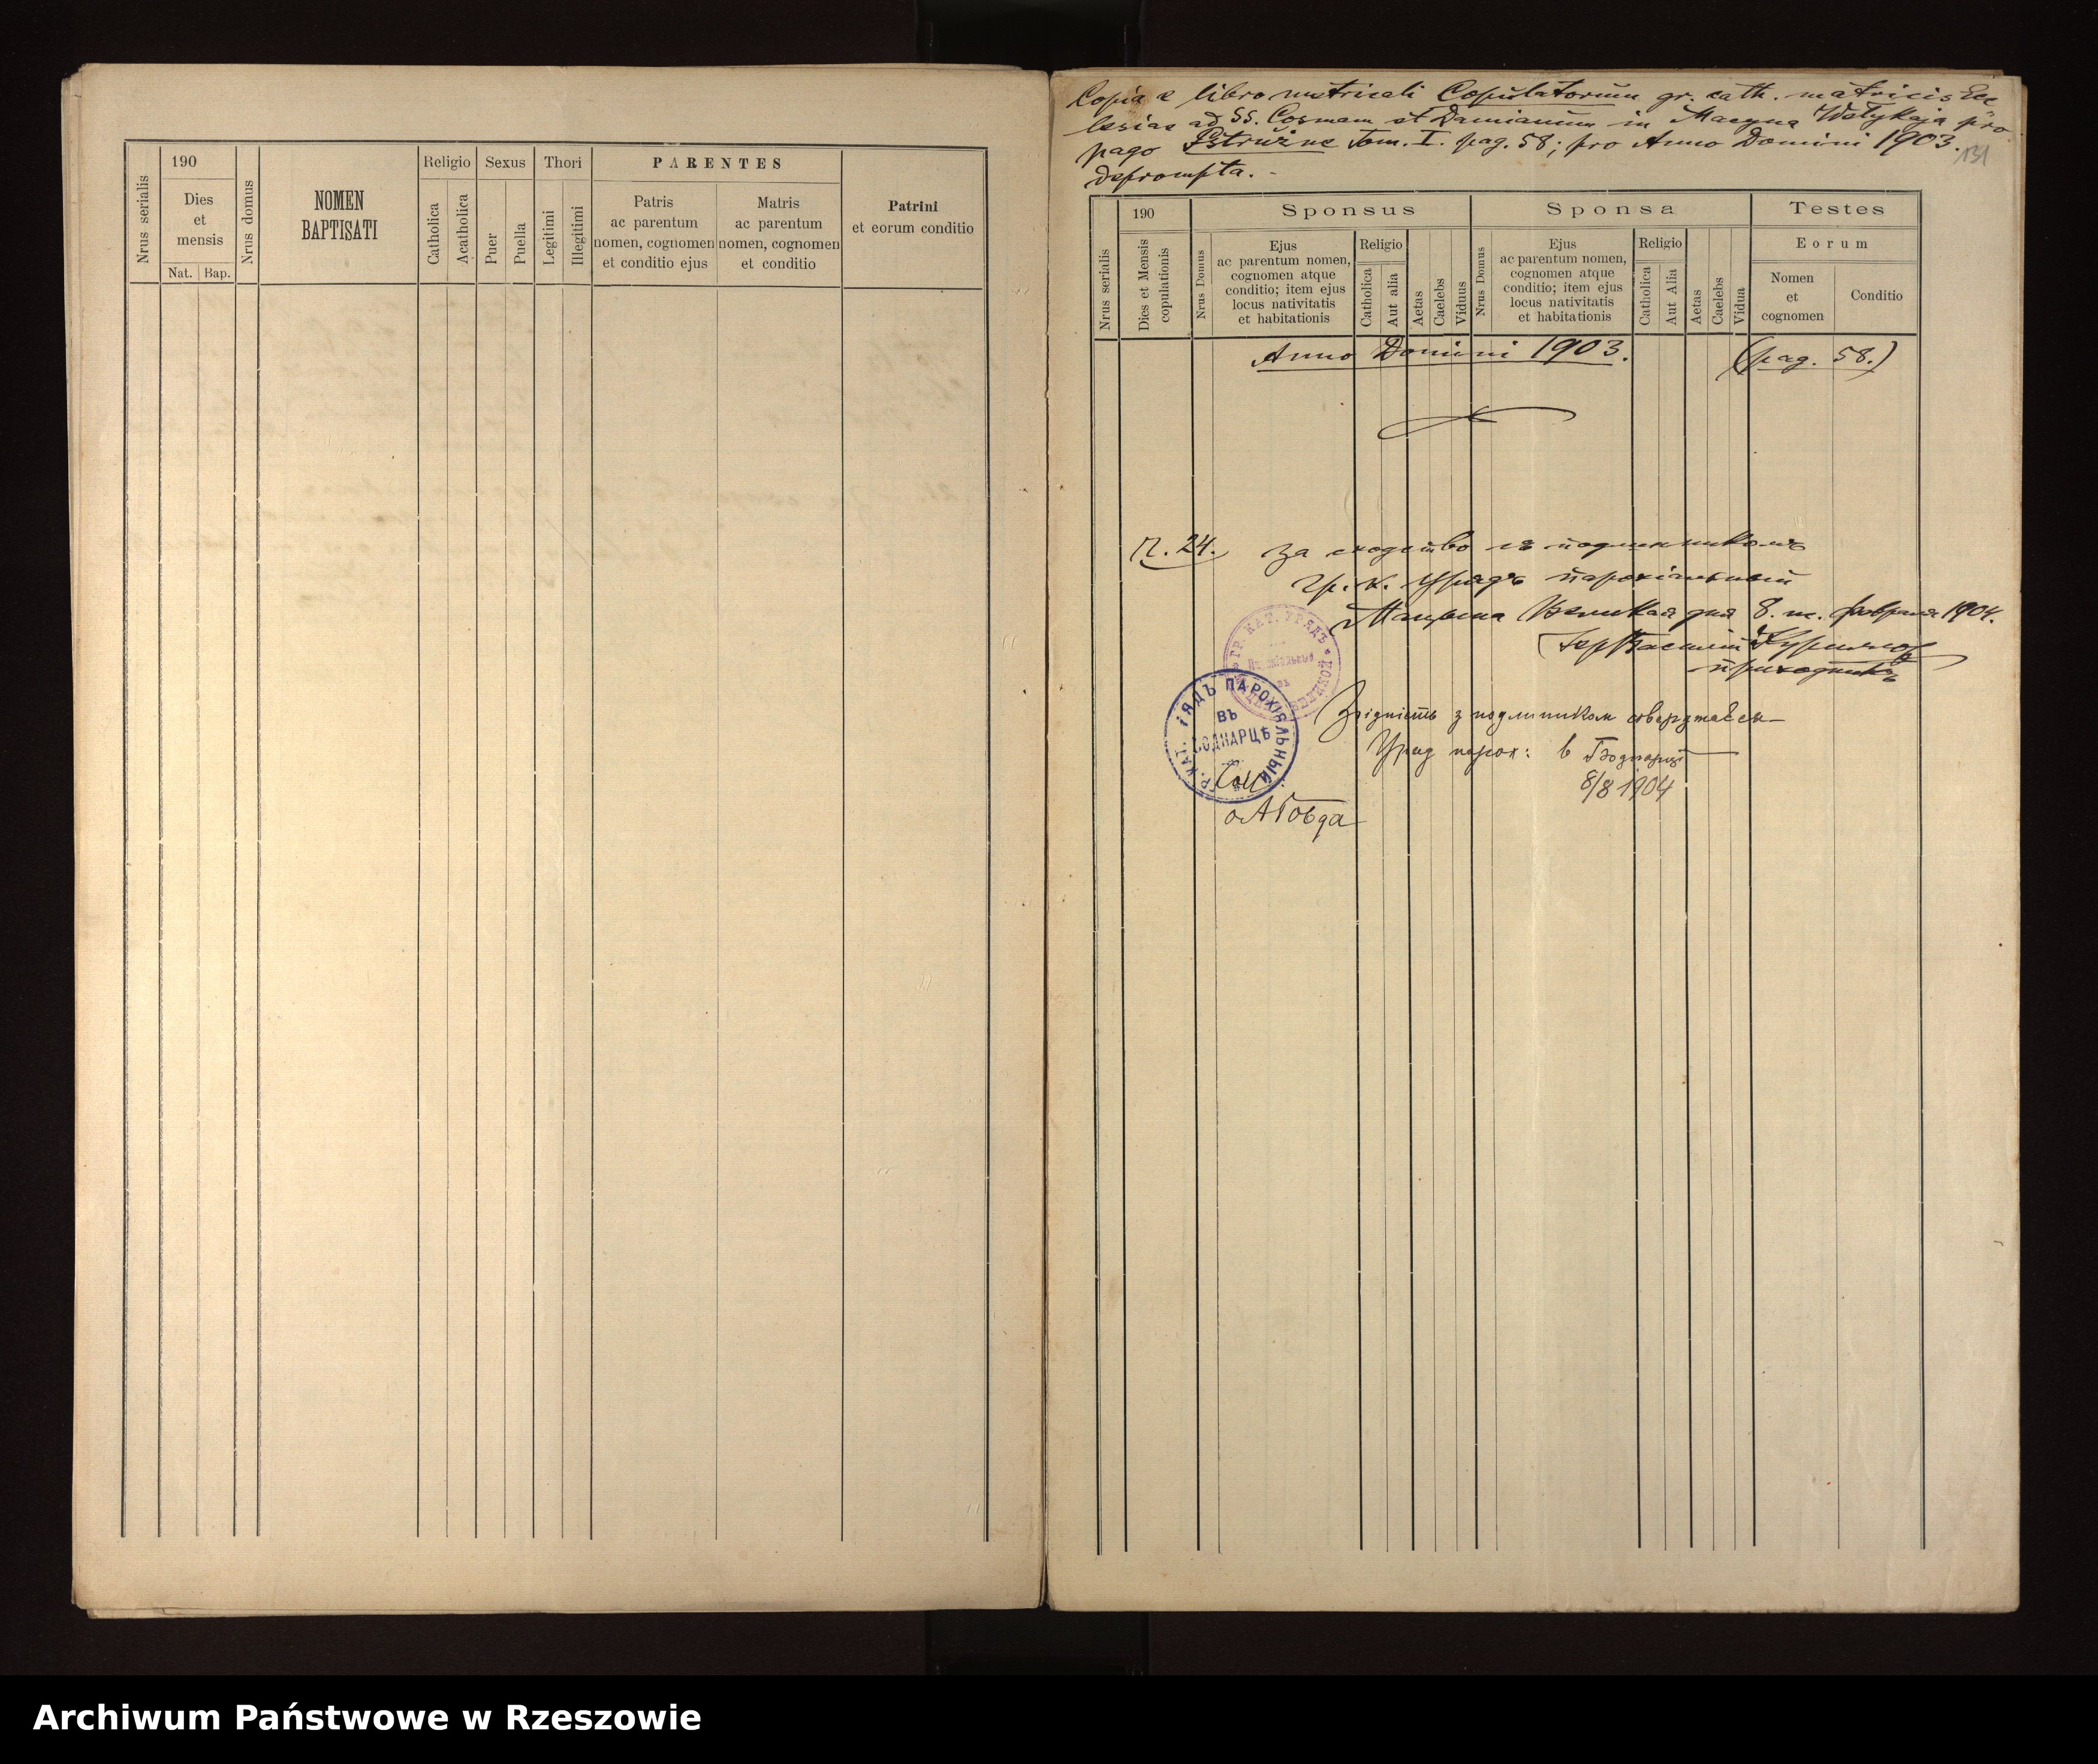 190
Nrus serialis
Dies
et
mensis
Nat. Bap.
Nrus domus
NOMEN
BAPTISATI
Religio
Catholica
Acatholica
Sexus
Puer
Puella
Thori
Legitimi
Illegitimi
PARENTES
Patris
ac parentum
nomen, cognomen
et conditio ejus
Matris
ac parentum
nomen, cognomen
et conditio
Patrini
et eorum conditio
Copia e libro metricali Copulatorum gr. cath. matricis Ecc
lesiae ad SS. Cosmam et Damianum in Macyna Wełykaja pro
pago Pstrużne Tom. I. pag. 58; pro Anno Domini 1903.
deprompta. -
131
190
Nrus serialis
Dies et Mensis
copulationis
Sponsus
Nrus Domus
Ejus
ac parentum nomen,
cognomen atque
conditio; item ejus
locus nativitatis
et habitationis
Religio
Catholica
Aut alia
Aetas
Caelebs
Viduus
Sponsa
Nrus Domus
Ejus
ac parentum nomen,
cognomen atque
conditio; item ejus
locus nativitatis
et habitationis
Religio
Catholica
Aut Alia
Aetas
Caelebs
Vidua
Testes
Eorum
Nomen
et
cognomen
Conditio
Anno Domini 1903. (pag. 58.)
Ч. 24. За сходство съ подлинникомъ
Гр. к. Урядъ парохіальный
Мацына Великая дня 8. м. Февраля 1904.
приходникъ
ГР. КАТ. УРЯДЪ
ГР. КАТ. УРЯДЪ ПАРОХІЯЛЬНЫЙ
ВЪ
БОДНАРЦѢ
Згідність з подлинником стверджаєся
Уряд парох: в Боднарці
8/8 1904